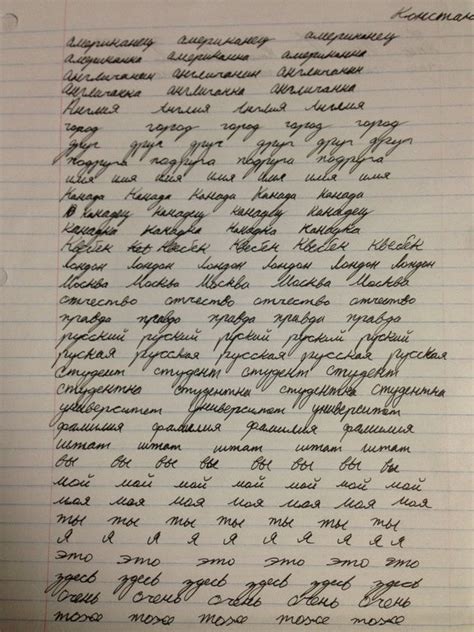 Констан
американец американец американец
американка американка американка
англичанин англичанин англичанин
англичанка англичанка англичанка
Англия Англия Англия Англия
город город город город город
друг друг друг друг друг
подруга подруга подруга подруга
имя имя имя имя имя имя имя
Канада Канада Канада Канада Канада
канадец канадец канадец канадец
канадка канадка канадка канадка
Квебек Квебек Квебек Квебек Квебек
Лондон Лондон Лондон Лондон Лондон Лондон
Москва Москва Москва Москва Москва
отчество отчество отчество отчество
правда правда правда правда правда
русский русский русский русский русский
русская русская русская русская русская
студент студент студент студент
студентка студентка студентка студентка
университет университет университет
фамилия фамилия фамилия фамилия
штат штат штат штат штат
вы вы вы вы вы вы вы вы
мой мой мой мой мой мой мой
моя моя моя моя моя моя моя
ты ты ты ты ты ты ты
Я Я Я Я Я Я Я Я Я
это это это это это это
здесь здесь здесь здесь здесь здесь
очень очень очень очень очень
тоже тоже тоже тоже тоже